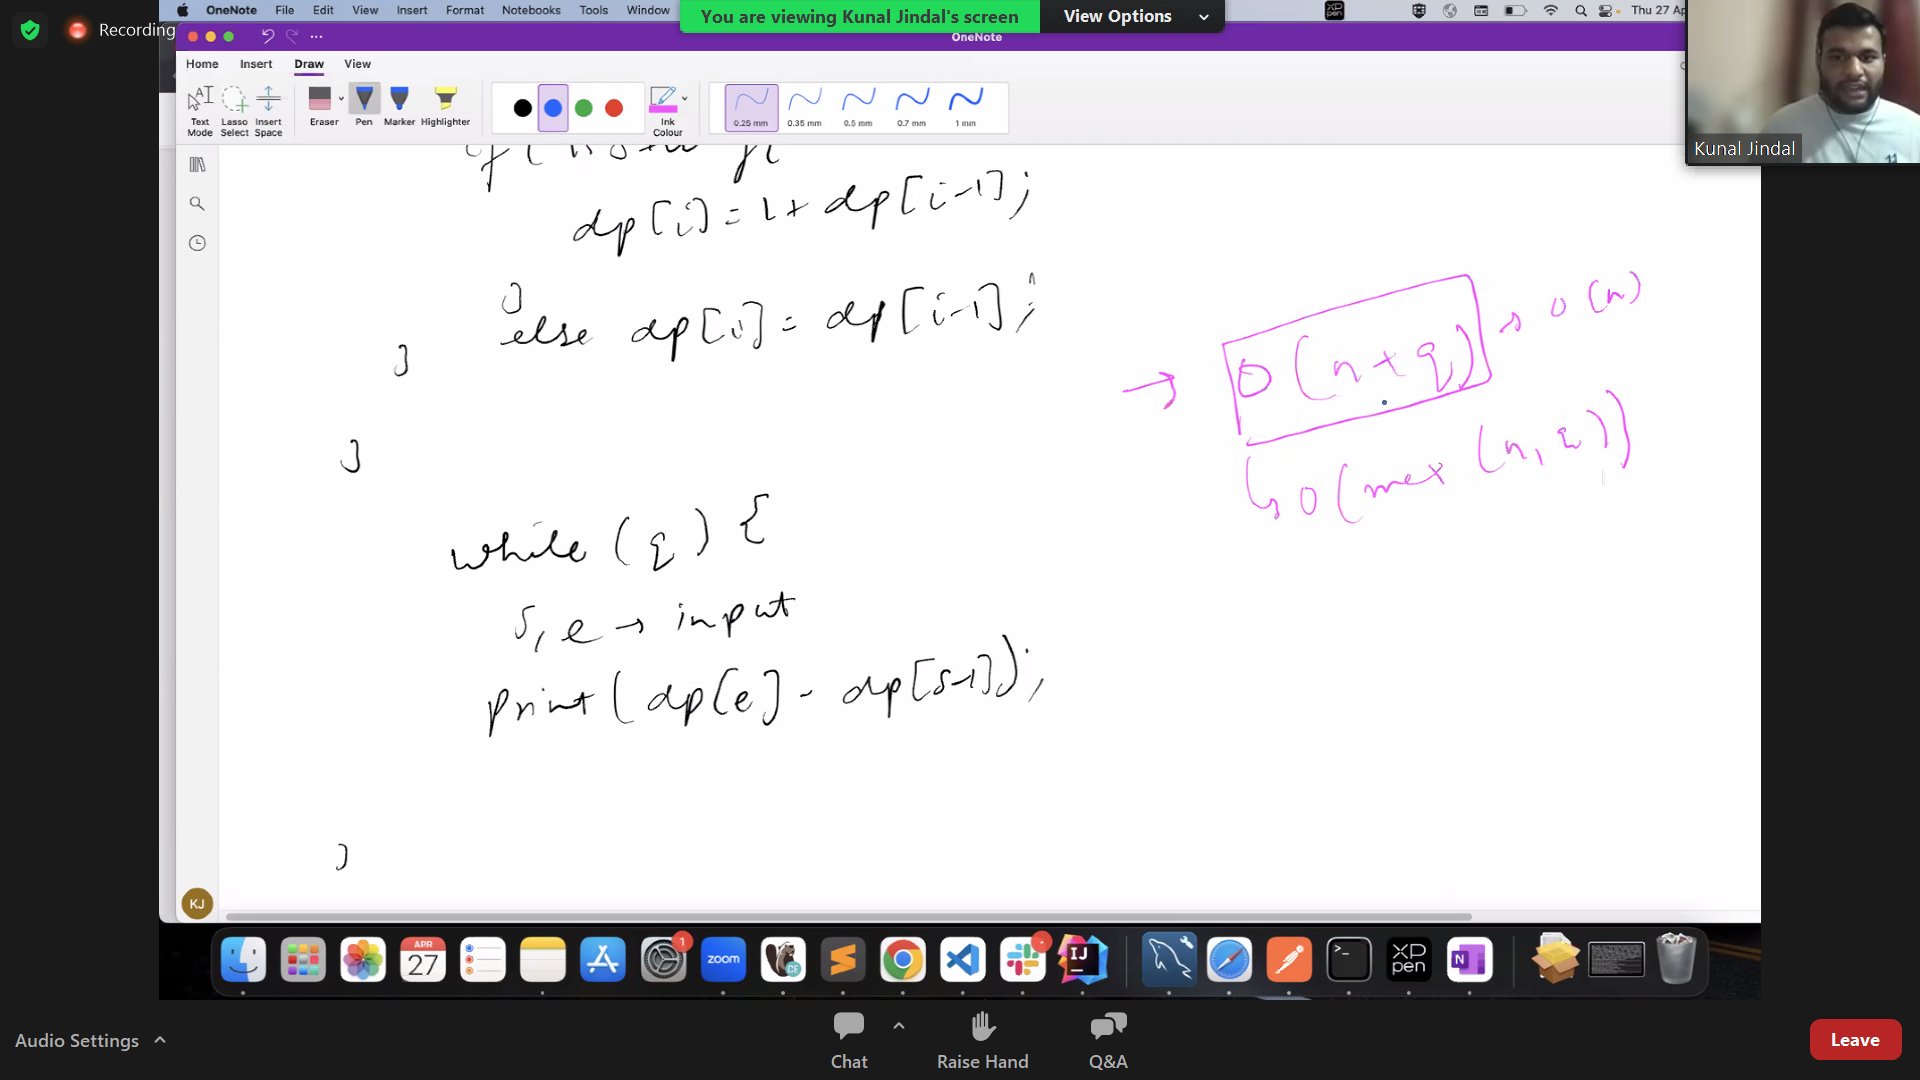 OneNote File Edit View Insert Format Notebooks Tools Window
You are viewing Kunal Jindal's screen View Options
Thu 27 Ap
Recording
OneNote
Home Insert Draw View
Text Mode
Lasso Select
Insert Space
Eraser
Pen
Marker
Highlighter
Ink Colour
0.25 mm 0.35 mm 0.5 mm 0.7 mm 1 mm
Kunal Jindal
dp[i] = 1 + dp[i-1];
}
else dp[i] = dp[i-1];
}
}
→ O(n+q) → O(n)
↳ O(max(n, q))
while (q) {
s, e → input
print(dp[e] - dp[s-1]);
}
KJ
APR
27
1
zoom
CE
IJ
XP
pen
N
Audio Settings
Chat
Raise Hand
Q&A
Leave